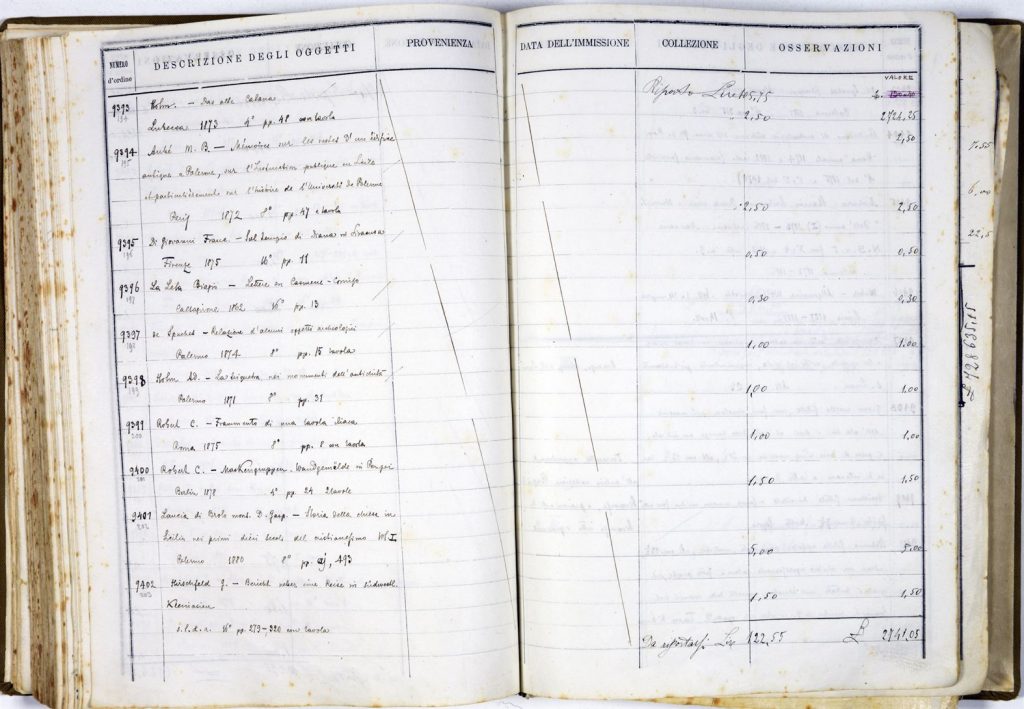 NUMERO d'ordine
DESCRIZIONE DEGLI OGGETTI
PROVENIENZA
9393 Holm. — Das alte Catana
194 Lubecca 1873 4° pp. 48 con tavola
9394 Aubé M. B. — Mémoires sur les restes d'un édifice
195 antique a Palerme, sur l'Instruction publique en
et particulièrement sur l'histoire de l'Université de Palerme
1872 8° pp. 47 e tavola
9395 Di Giovanni Franc. — Sul tempio di Diana in Siracusa
196 Firenze 1875 16° pp. 11
9396 La Lela Biagio — Lettere su
197 Caltagirone 1862 16° pp. 13
9397 de Spuches — Relazione d'alcuni oggetti archeologici
198 Palermo 1874 8° pp. 15 tavola
9398 Holm AD. — La triquetra nei monumenti dell'antichità
199 Palermo 1871 8° pp. 31
9399 Robert C. — Frammento di una tavola iliaca
200 Roma 1875 8° pp. 8 con tavola
9400 Robert C. — Maskengruppen. Wandgemälde in Pompei
201 Berlin 1878 4° pp. 24 2 tavole
9401 Lancia di Brolo mons. D. Gasp. — Storia della chiesa in
202 Sicilia nei primi dieci secoli del cristianesimo Vol. I
Palermo 1880 8° pp. 493
9402 Hirschfeld G. — Bericht ueber eine Reise in südwestl.
203 Kleinasien
s.l.d.a. 16° pp. 279-320 con tavola
DATA DELL'IMMISSIONE
COLLEZIONE
OSSERVAZIONI
VALORE
Riporto Lire 105,75
2,50 2724,25
2,50
2,50 2,50
0,50 0,50
0,30 0,30
1,00 1.00
1,00 1.00
1,00 1,00
1,50 1,50
5,00 5,00
1,50 1,50
Da riportarsi Lire 122,55 £ 2741,05
7.55
6,00
22,5